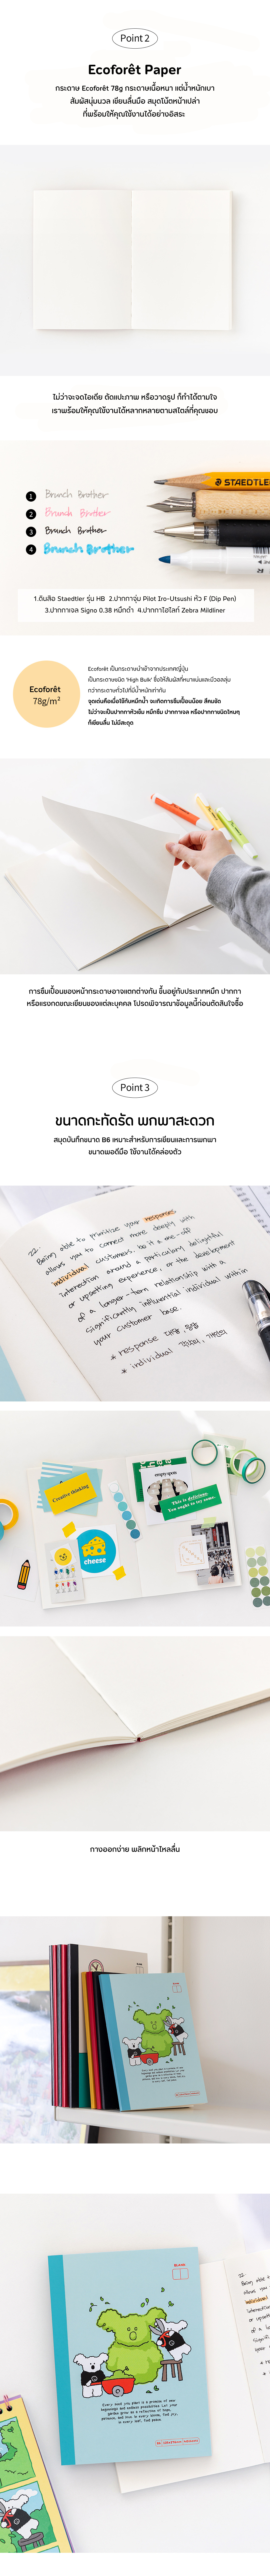 Point 2
Ecoforêt Paper
กระดาษ Ecoforêt 78g กระดาษเนื้อหนา แต่น้ำหนักเบา
สัมผัสนุ่มนวล เขียนลื่นมือ สมุดโน้ตหน้าเปล่า
ที่พร้อมให้คุณใช้งานได้อย่างอิสระ
ไม่ว่าจะจดไอเดีย ตัดแปะภาพ หรือวาดรูป ก็ทำได้ตามใจ
เราพร้อมให้คุณใช้งานได้หลากหลายตามสไตล์ที่คุณชอบ
1 Brunch Brother
2 Brunch Brother
3 Brunch Brother
4 Brunch Brother
STAEDTLER
1.ดินสือ Staedtler รุ่น HB 2.ปากกาจุ่ม Pilot Iro-Utsushi หัว F (Dip Pen)
3.ปากกาเจล Signo 0.38 หมึกดำ 4.ปากกาไฮไลท์ Zebra Mildliner
Ecoforêt
78g/m²
Ecoforêt เป็นกระดาษนำเข้าจากประเทศญี่ปุ่น
เป็นกระดาษชนิด 'High Bulk' ซึ่งให้สัมผัสที่หนาแน่นและมีวอลลุ่ม
กว่ากระดาษทั่วไปที่มีน้ำหนักเท่ากัน
จุดเด่นคือเมื่อใช้กับหมึกน้ำ จะเกิดการซึมเปื้อนน้อย สีคมชัด
ไม่ว่าจะเป็นปากกาหัวเข็ม หมึกซึม ปากกาเจล หรือปากกาชนิดไหนๆ
ก็เขียนลื่น ไม่มีสะดุด
การซึมเปื้อนของหน้ากระดาษอาจแตกต่างกัน ขึ้นอยู่กับประเภทหมึก ปากกา
หรือแรงกดขณะเขียนของแต่ละบุคคล โปรดพิจารณาข้อมูลนี้ก่อนตัดสินใจซื้อ
Point 3
ขนาดกะทัดรัด พกพาสะดวก
สมุดบันทึกขนาด B6 เหมาะสำหรับการเขียนและการพกพา
ขนาดพอดีมือ ใช้งานได้คล่องตัว
22.
Being able to prioritize your responses
allows you to connect more deeply with
individual customers, be it a one-off
interaction around a particularly delightful
or upsetting experience, or the development
of a longer-term relationship with a
significantly influential individual within
your customer base.
* response 대응, 응답
* individual 각각의, 개인의
Creative thinking
empty spots
This is delicious.
You ought to try some.
cheese
กางออกง่าย พลิกหน้าไหลลื่น
Every seed you plant is a promise of new
beginnings and endless possibilities. Let your
garden grow as a reflection of hope,
patience, and love in every bloom, find joy.
In every leaf, find peace.